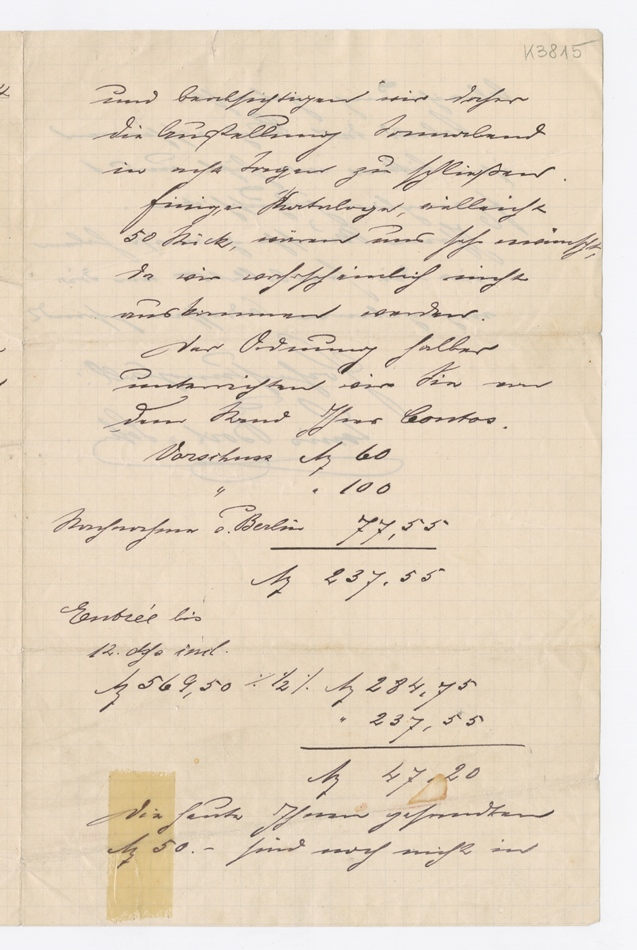 K3815
und beabsichtigen wir daher
die Ausstellung Sonnabend
in acht Tagen zu schließen.
Einige Kataloge, vielleicht
50 Stück, wären uns sehr erwünscht,
da wir wahrscheinlich nicht
auskommen werden.
Der Ordnung halber
unterrichten wir Sie von
dem Stand Ihres Contos.
Vorschuss M 60
" " 100
Nachnahme v. Berlin 77,55
M 237.55
Entrée bis
12. dfs incl.
M 569,50 ./. ½ M 284,75
" 237,55
M 47.20
Die heute Ihnen gesandten
M 50.- sind noch nicht in